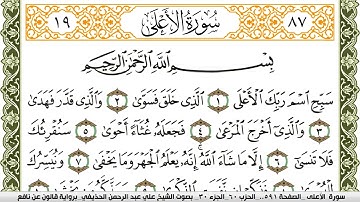 ٨٧ سُورَةُ الأَعْلَى ١٩
بِسْمِ اللَّهِ الرَّحْمَٰنِ الرَّحِيمِ
سَبِّحِ اسْمَ رَبِّكَ الْأَعْلَى ١ الَّذِي خَلَقَ فَسَوَّىٰ ٢ وَالَّذِي قَدَّرَ فَهَدَىٰ
٣ وَالَّذِي أَخْرَجَ الْمَرْعَىٰ ٤ فَجَعَلَهُ غُثَاءً أَحْوَىٰ ٥ سَنُقْرِئُكَ
فَلَا تَنسَىٰ ٦ إِلَّا مَا شَاءَ اللَّهُ إِنَّهُ يَعْلَمُ الْجَهْرَ وَمَا يَخْفَىٰ ٧ وَنُيَسِّرُكَ
سورة الأعلى . الصفحة ٥٩١ . الحزب ٦٠ . الجزء ٣٠ . بصوت الشيخ علي عبد الرحمن الحذيفي . برواية قالون عن نافع